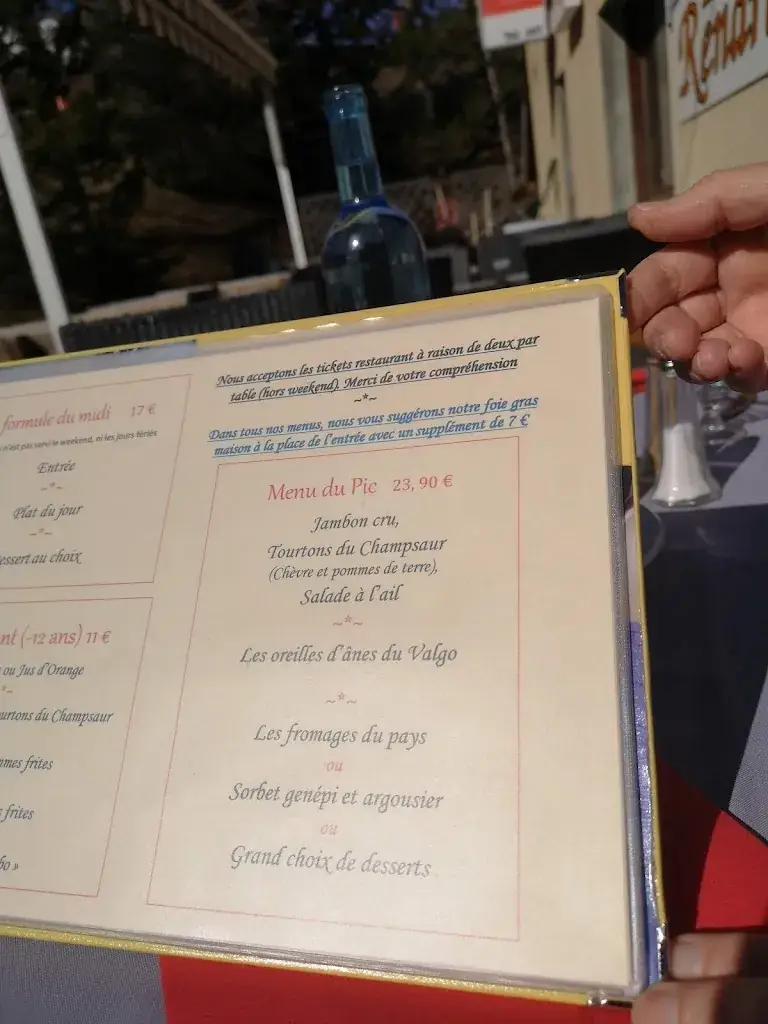 formule du midi 17 €
n'est pas servi le weekend, ni les jours fériés
Entrée
~*~
Plat du jour
~*~
dessert au choix
(-12 ans) 11 €
ou Jus d'Orange
Tourtons du Champsaur
frites
frites
Nous acceptons les tickets restaurant à raison de deux par
table (hors weekend). Merci de votre compréhension
~*~
Dans tous nos menus, nous vous suggérons notre foie gras
maison à la place de l'entrée avec un supplément de 7 €
Menu du Pic 23, 90 €
Jambon cru,
Tourtons du Champsaur
(Chèvre et pommes de terre),
Salade à l'ail
~*~
Les oreilles d'ânes du Valgo
~*~
Les fromages du pays
ou
Sorbet genépi et argousier
ou
Grand choix de desserts